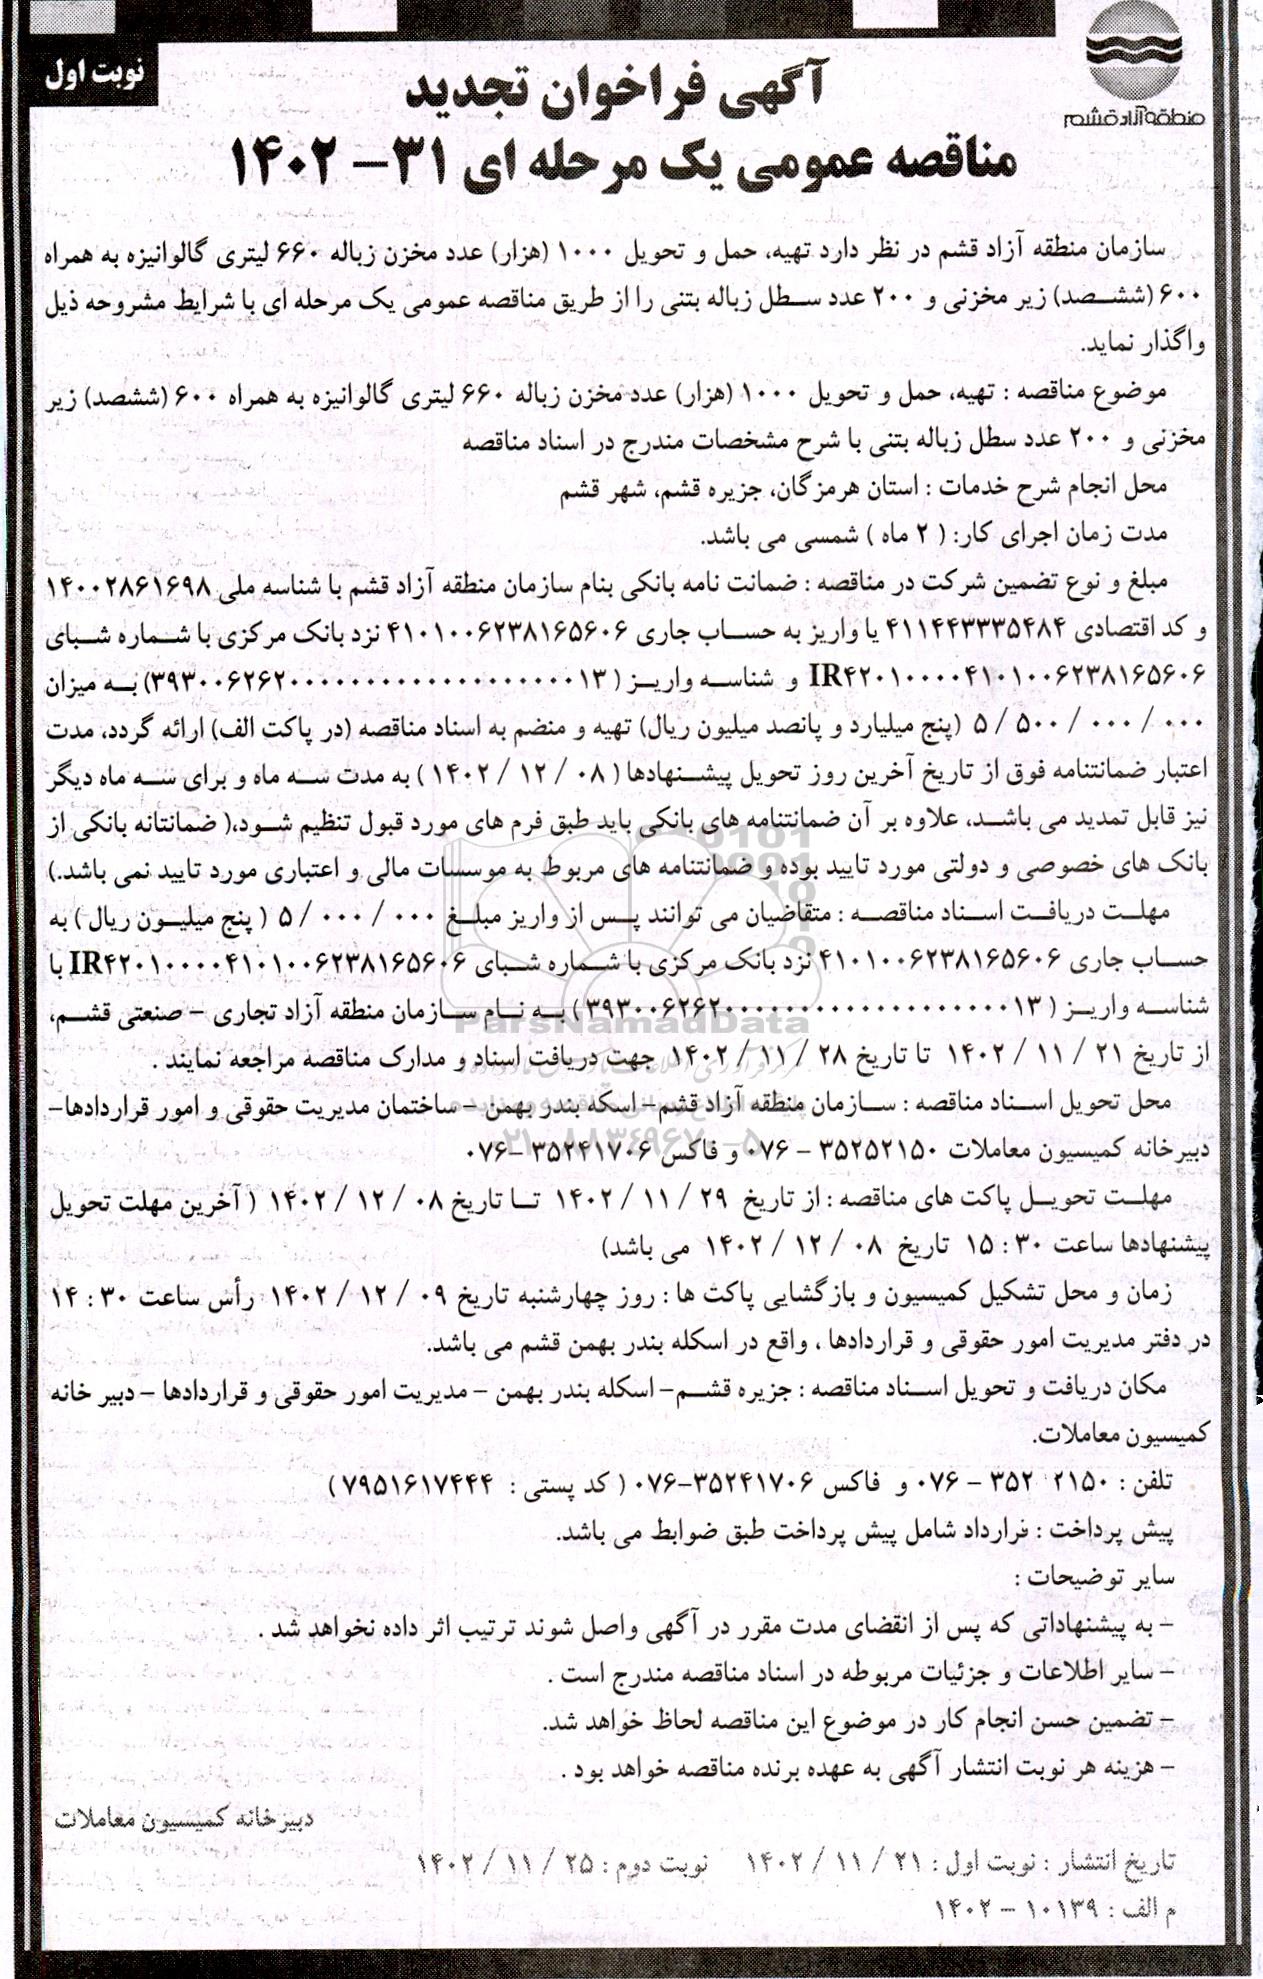 نوبت اول
منطقه آزاد قشم
آگهی فراخوان تجدید
مناقصه عمومی یک مرحله ای ۳۱- ۱۴۰۲
سازمان منطقه آزاد قشم در نظر دارد تهیه، حمل و تحویل ۱۰۰۰ (هزار) عدد مخزن زباله ۶۶۰ لیتری گالوانیزه به همراه
۶۰۰ (ششصد) زیر مخزنی و ۲۰۰ عدد سطل زباله بتنی را از طریق مناقصه عمومی یک مرحله ای با شرایط مشروحه ذیل
واگذار نماید.
موضوع مناقصه : تهیه، حمل و تحویل ۱۰۰۰ (هزار) عدد مخزن زباله ۶۶۰ لیتری گالوانیزه به همراه ۶۰۰ (ششصد) زیر
مخزنی و ۲۰۰ عدد سطل زباله بتنی با شرح مشخصات مندرج در اسناد مناقصه
محل انجام شرح خدمات : استان هرمزگان، جزیره قشم، شهر قشم
مدت زمان اجرای کار: ( ۲ ماه ) شمسی می باشد.
مبلغ و نوع تضمین شرکت در مناقصه : ضمانت نامه بانکی بنام سازمان منطقه آزاد قشم با شناسه ملی ۱۴۰۰۲۸۶۱۶۹۸
و کد اقتصادی ۴۱۱۴۴۳۳۳۵۴۸۴ یا واریز به حساب جاری ۴۱۰۱۰۰۶۲۳۸۱۶۵۶۰۶ نزد بانک مرکزی با شماره شبای
IR۴۲۰۱۰۰۰۰۴۱۰۱۰۰۶۲۳۸۱۶۵۶۰۶ و شناسه واریز ( ۳۹۳۰۰۶۲۶۲۰۰۰۰۰۰۰۰۰۰۰۰۰۰۰۰۰۰۰۱۳) به میزان
۵ / ۵۰۰ / ۰۰۰ / ۰۰۰ (پنج میلیارد و پانصد میلیون ریال) تهیه و منضم به اسناد مناقصه (در پاکت الف) ارائه گردد، مدت
اعتبار ضمانتنامه فوق از تاریخ آخرین روز تحویل پیشنهادها ( ۰۸ / ۱۲ / ۱۴۰۲ ) به مدت سه ماه و برای سه ماه دیگر
نیز قابل تمدید می باشد، علاوه بر آن ضمانتنامه های بانکی باید طبق فرم های مورد قبول تنظیم شود،( ضمانتانه بانکی از
بانک های خصوصی و دولتی مورد تایید بوده و ضمانتنامه های مربوط به موسسات مالی و اعتباری مورد تایید نمی باشد.)
مهلت دریافت اسناد مناقصه : متقاضیان می توانند پس از واریز مبلغ ۰۰۰ / ۰۰۰ / ۵ ( پنج میلیون ریال ) به
حساب جاری ۴۱۰۱۰۰۶۲۳۸۱۶۵۶۰۶ نزد بانک مرکزی با شماره شبای IR۴۲۰۱۰۰۰۰۴۱۰۱۰۰۶۲۳۸۱۶۵۶۰۶ با
شناسه واریز ( ۳۹۳۰۰۶۲۶۲۰۰۰۰۰۰۰۰۰۰۰۰۰۰۰۰۰۰۰۱۳ ) به نام سازمان منطقه آزاد تجاری - صنعتی قشم،
از تاریخ ۲۱ / ۱۱ / ۱۴۰۲ تا تاریخ ۲۸ / ۱۱ / ۱۴۰۲ جهت دریافت اسناد و مدارک مناقصه مراجعه نمایند .
محل تحویل اسناد مناقصه : سازمان منطقه آزاد قشم- اسکه بندر بهمن - ساختمان مدیریت حقوقی و امور قراردادها-
دبیرخانه کمیسیون معاملات ۳۵۲۵۲۱۵۰ - ۰۷۶ و فاکس ۳۵۲۴۱۷۰۶ -۰۷۶
مهلت تحویل پاکت های مناقصه : از تاریخ ۲۹ / ۱۱ / ۱۴۰۲ تا تاریخ ۰۸ / ۱۲ / ۱۴۰۲ ( آخرین مهلت تحویل
پیشنهادها ساعت ۳۰ : ۱۵ تاریخ ۰۸ / ۱۲ / ۱۴۰۲ می باشد)
زمان و محل تشکیل کمیسیون و بازگشایی پاکت ها : روز چهارشنبه تاریخ ۰۹ / ۱۲ / ۱۴۰۲ رأس ساعت ۳۰ : ۱۴
در دفتر مدیریت امور حقوقی و قراردادها ، واقع در اسکله بندر بهمن قشم می باشد.
مکان دریافت و تحویل اسناد مناقصه : جزیره قشم- اسکله بندر بهمن - مدیریت امور حقوقی و قراردادها - دبیر خانه
کمیسیون معاملات.
تلفن : ۲۱۵۰ ۳۵۲ - ۰۷۶ و فاکس ۳۵۲۴۱۷۰۶-۰۷۶ ( کد پستی : ۷۹۵۱۶۱۷۴۴۴ )
پیش پرداخت : قرارداد شامل پیش پرداخت طبق ضوابط می باشد.
سایر توضیحات :
- به پیشنهاداتی که پس از انقضای مدت مقرر در آگهی واصل شوند ترتیب اثر داده نخواهد شد .
- سایر اطلاعات و جزئیات مربوطه در اسناد مناقصه مندرج است .
- تضمین حسن انجام کار در موضوع این مناقصه لحاظ خواهد شد.
- هزینه هر نوبت انتشار آگهی به عهده برنده مناقصه خواهد بود .
دبیرخانه کمیسیون معاملات
تاریخ انتشار : نوبت اول : ۲۱ / ۱۱ / ۱۴۰۲ نوبت دوم : ۲۵ / ۱۱ / ۱۴۰۲
م الف : ۱۰۱۳۹ - ۱۴۰۲
ParsNamadData
۰۲۱-۸۸۳۴۹۶۷۰-۵